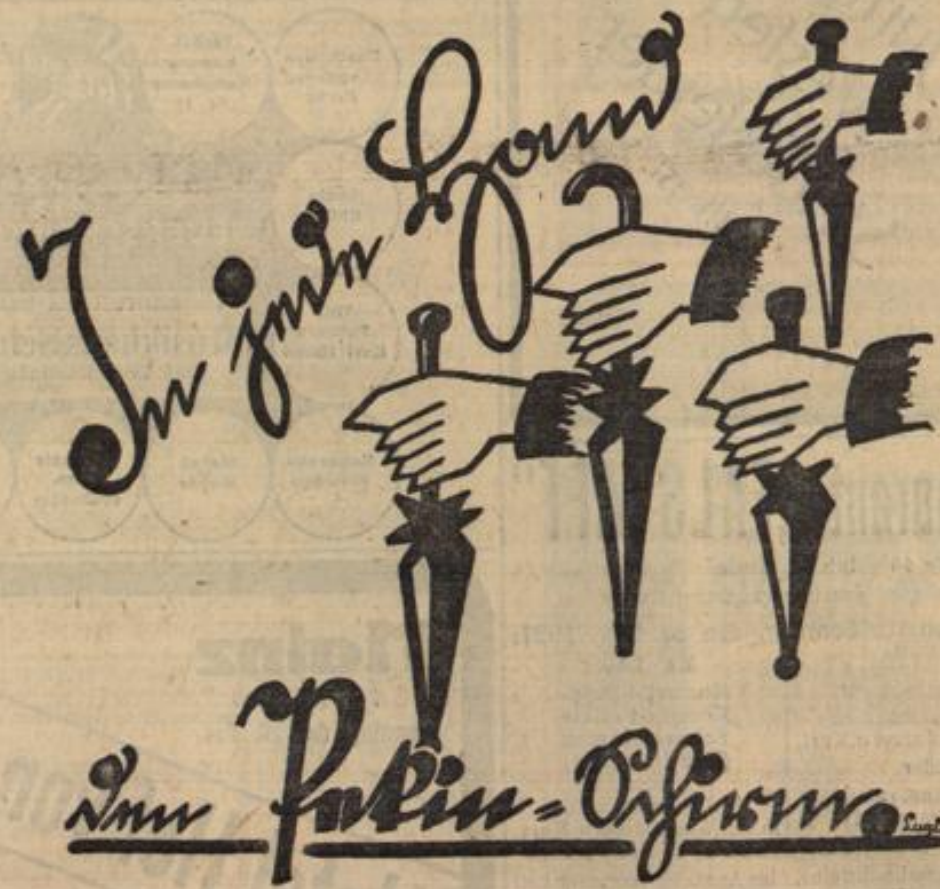 In jede Hand
den Pekin=Schirm.